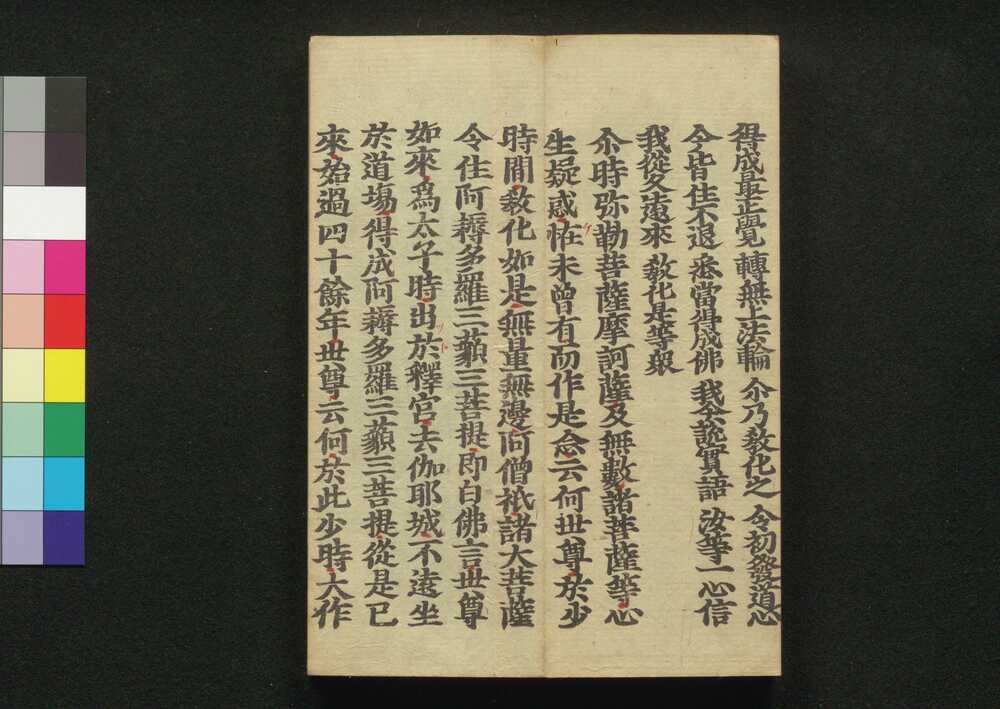 得成最正覺 轉無上法輪 尒乃教化之 令初發道心
今皆住不退 悉當得成佛 我今說實語 汝等一心信
我從久遠來 教化是等衆
尒時弥勒菩薩摩訶薩及無數諸菩薩等心
生疑惑恠未曾有而作是念云何世尊於少
時間教化如是無量無邊阿僧祇諸大菩薩
令住阿耨多羅三藐三菩提即白佛言世尊
如來爲太子時出於釋宫去伽耶城不遠坐
於道場得成阿耨多羅三藐三菩提從是已
來始過四十餘年世尊云何於此少時大作